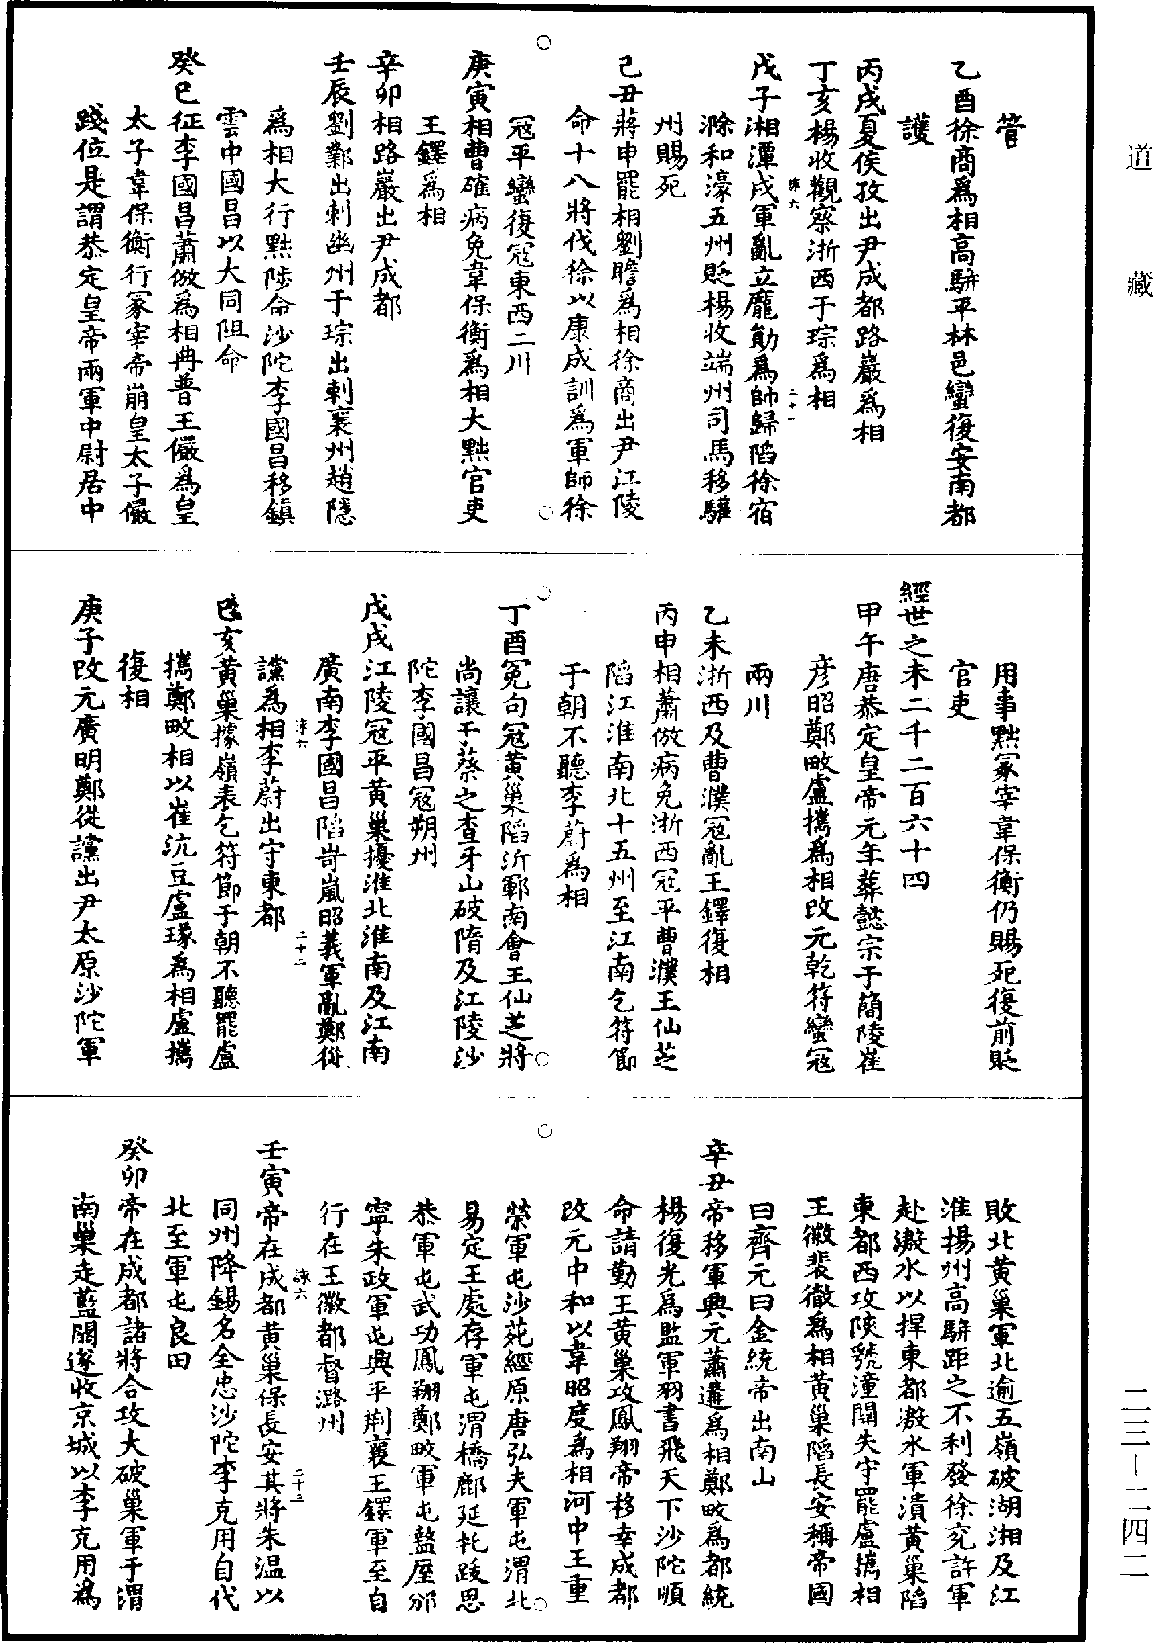 道藏
管
乙酉徐商爲相高駢平林邑蠻復安南都
護
丙戌夏侯孜出尹成都路巖爲相
丁亥楊收觀察浙西于琮爲相
戊子湘潭戍軍亂立龐勛爲帥歸陷徐宿
滁和濠五州貶楊收端州司馬移驩
州賜死
己丑蔣申罷相劉瞻爲相徐商出尹江陵
命十八將伐徐以康成訓爲軍師徐
冦平蠻復冦東西二川
庚寅相曹確病免韋保衡爲相大黜官吏
王鐸爲相
辛卯相路巖出尹成都
壬辰劉鄴出刺幽州于琮出刺襄州趙隱
爲相大行黜陟命沙陀李國昌移鎮
雲中國昌以大同阻命
癸巳征李國昌蕭倣爲相冉普王儼爲皇
太子韋保衡行冢宰帝崩皇太子儼
踐位是謂恭定皇帝兩軍中尉居中
用事黜冢宰韋保衡仍賜死復前貶
官吏
經世之未二千二百六十四
甲午唐恭定皇帝元年葬懿宗于簡陵崔
彦昭鄭畋盧攜爲相改元乾符蠻冦
兩川
乙未浙西及曹濮冦亂王鐸復相
丙申相蕭倣病免浙西冦平曹濮王仙芝
陷江淮南北十五州至江南乞符節
于朝不聽李蔚爲相
丁酉冤句冦黄巢陷沂鄆南會王仙芝將
尚讓于蔡之查牙山破隋及江陵沙
陀李國昌冦朔州
戊戌江陵冦平黄巢擾淮北淮南及江南
廣南李國昌陷岢嵐昭義軍亂鄭從
讜爲相李蔚出守東都
己亥黄巢據嶺表乞符節于朝不聽罷盧
攜鄭畋相以崔沆豆盧瑑爲相盧攜
復相
庚子改元廣明鄭從讜出尹太原沙陀軍
敗北黄巢軍北逾五嶺破湖湘及江
淮揚州高駢距之不利發徐兖許軍
赴溵水以捍東都溵水軍潰黄巢陷
東都西攻陝虢潼關失守罷盧攜相
王徽裴徹爲相黄巢陷長安稱帝國
曰齊元曰金統帝出南山
辛丑帝移軍興元蕭遘爲相鄭畋爲都統
楊復光爲監軍羽書飛天下沙陀順
命請勤王黄巢攻鳳翔帝移幸成都
改元中和以韋昭度爲相河中王重
榮軍屯沙苑經原唐弘夫軍屯渭北
易定王處存軍屯渭橋鄜延托跋思
恭軍屯武功鳳翔鄭畋軍屯盩厔邠
寧朱政軍屯興平荆襄王鐸軍至自
行在王徽都督潞州
壬寅帝在成都黄巢保長安其將朱温以
同州降錫名全忠沙陀李克用自代
北至軍屯良田
癸卯帝在成都諸將合攻大破巢軍于渭
南巢走藍關遂收京城以李克用爲
二三—二四二